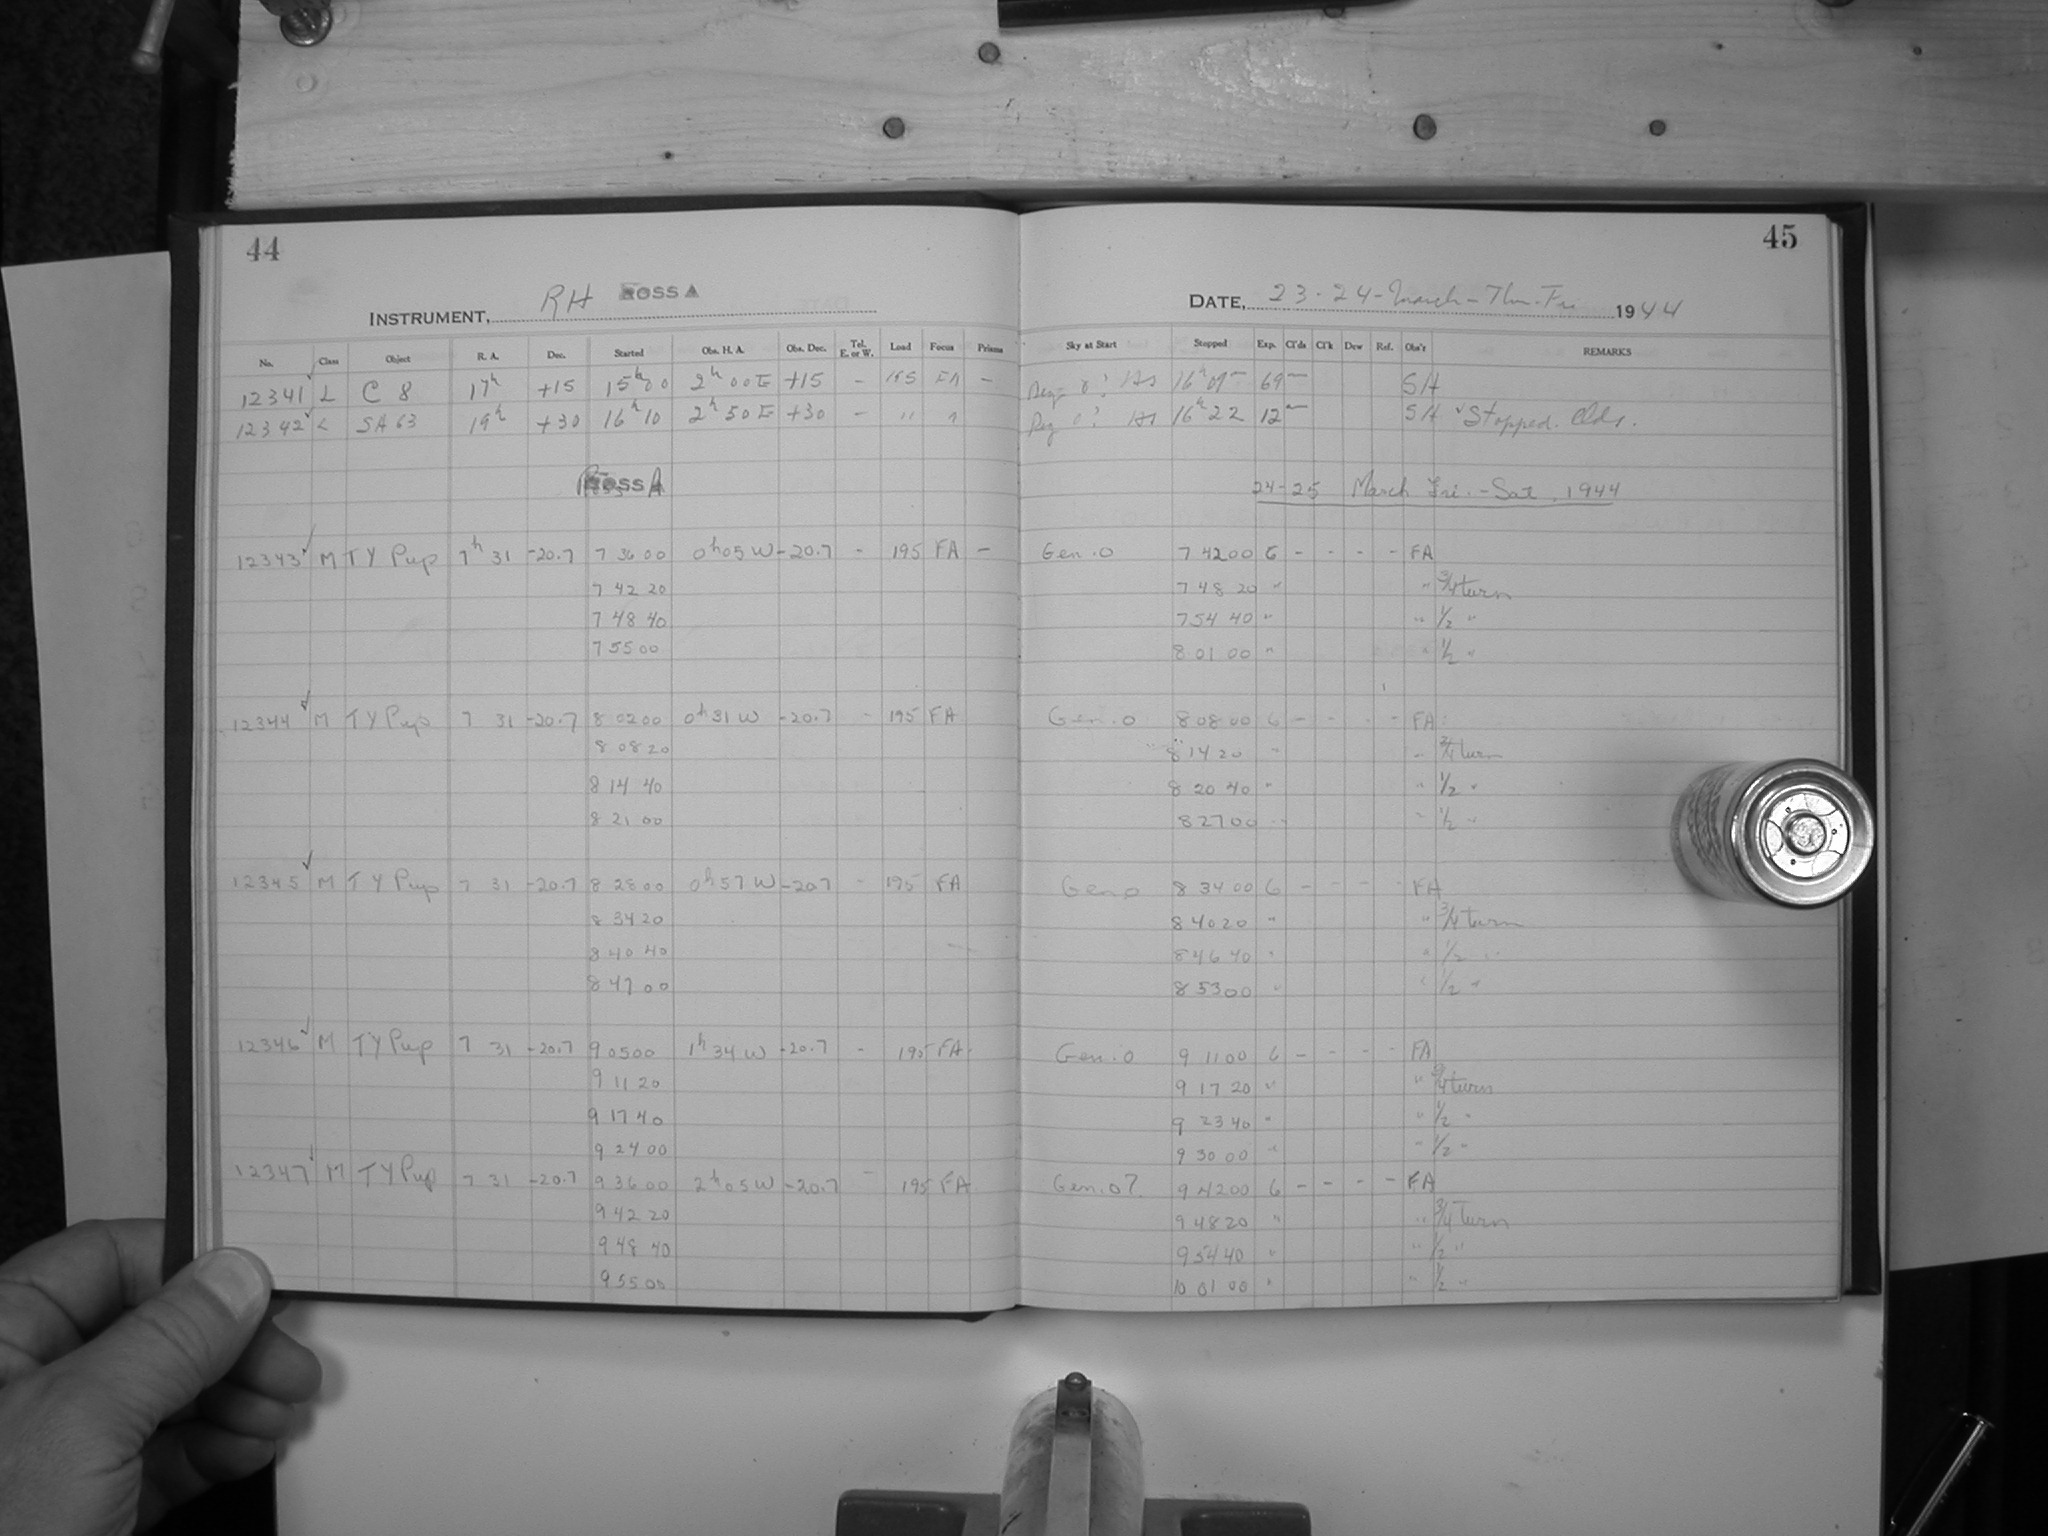 44
INSTRUMENT, RH ROSS A
No. Class Object R. A. Dec. Started Obs. H. A. Obs. Dec. Tel. E. or W. Load Focus Prisms
12341 L C 8 17h +15 15h00 2h00E +15 - 195 FA -
12342 L SA 63 19h +30 16h10 2h50E +30 - " "
Ross A
12343 M TY Pup 7h 31 -20.7 7 36 00 0h05W -20.7 - 195 FA -
7 42 20
7 48 40
7 55 00
12344 M TY Pup 7 31 -20.7 8 02 00 0h31W -20.7 - 195 FA
8 08 20
8 14 40
8 21 00
12345 M TY Pup 7 31 -20.7 8 28 00 0h57W -20.7 - 195 FA
8 34 20
8 40 40
8 47 00
12346 M TY Pup 7 31 -20.7 9 05 00 1h34W -20.7 - 195 FA
9 11 20
9 17 40
9 24 00
12347 M TY Pup 7 31 -20.7 9 36 00 2h05W -20.7 - 195 FA
9 42 20
9 48 40
9 55 00
45
DATE, 23-24-March-Thu-Fri 1944
Sky at Start Stopped Exp. Cl'ds Cl'k Dew Ref. Obs'r REMARKS
16h09m 69m SH
16h22 12m SH Stopped. Clds.
24-25 March Fri.-Sat. 1944
Gen. 0 7 42 00 6 - - - - FA
7 48 20 " " 3/4 turn
7 54 40 " " 1/2 "
8 01 00 " " 1/2 "
Gen. 0 8 08 00 6 - - - - FA
8 14 20 " " 3/4 turn
8 20 40 " " 1/2 "
8 27 00 " " 1/2 "
Gen. 0 8 34 00 6 - - - - FA
8 40 20 " " 3/4 turn
8 46 40 " " 1/2 "
8 53 00 " " 1/2 "
Gen. 0 9 11 00 6 - - - - FA
9 17 20 " " 3/4 turn
9 23 40 " " 1/2 "
9 30 00 " " 1/2 "
Gen. 0? 9 42 00 6 - - - - FA
9 48 20 " " 3/4 turn
9 54 40 " " 1/2 "
10 01 00 " " 1/2 "